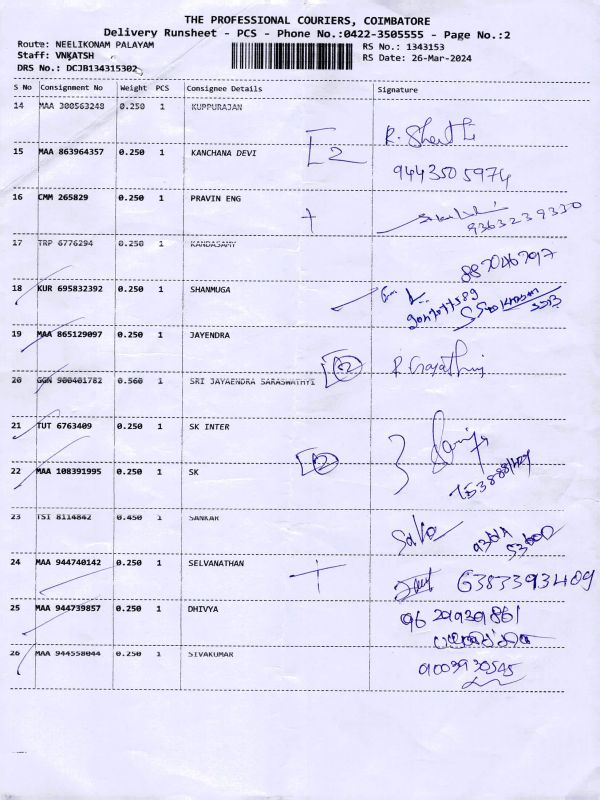 THE PROFESSIONAL COURIERS, COIMBATORE
Delivery Runsheet - PCS - Phone No.:0422-3505555 - Page No.:2
Route: NEELIKONAM PALAYAM
RS No.: 1343153
Staff: VNKATSH
RS Date: 26-Mar-2024
DRS No.: DCJB134315302
S No Consignment No Weight PCS Consignee Details Signature
14 MAA 300563248 0.250 1 KUPPURAJAN
15 MAA 863964357 0.250 1 KANCHANA DEVI [2
9443505974
16 CMM 265829 0.250 1 PRAVIN ENG
9363239330
17 TRP 6776294 0.250 1 KANDASAMY
18 KUR 695832392 0.250 1 SHANMUGA
19 MAA 865129097 0.250 1 JAYENDRA
20 GGN 900401782 0.560 1 SRI JAYAENDRA SARASWATHYI
21 TUT 6763409 0.250 1 SK INTER
22 MAA 108391995 0.250 1 SK
23 TSI 8114842 0.450 1 SANKAR
24 MAA 944740142 0.250 1 SELVANATHAN
6383393409
25 MAA 944739857 0.250 1 DHIVYA
26 MAA 944558044 0.250 1 SIVAKUMAR
9003930545